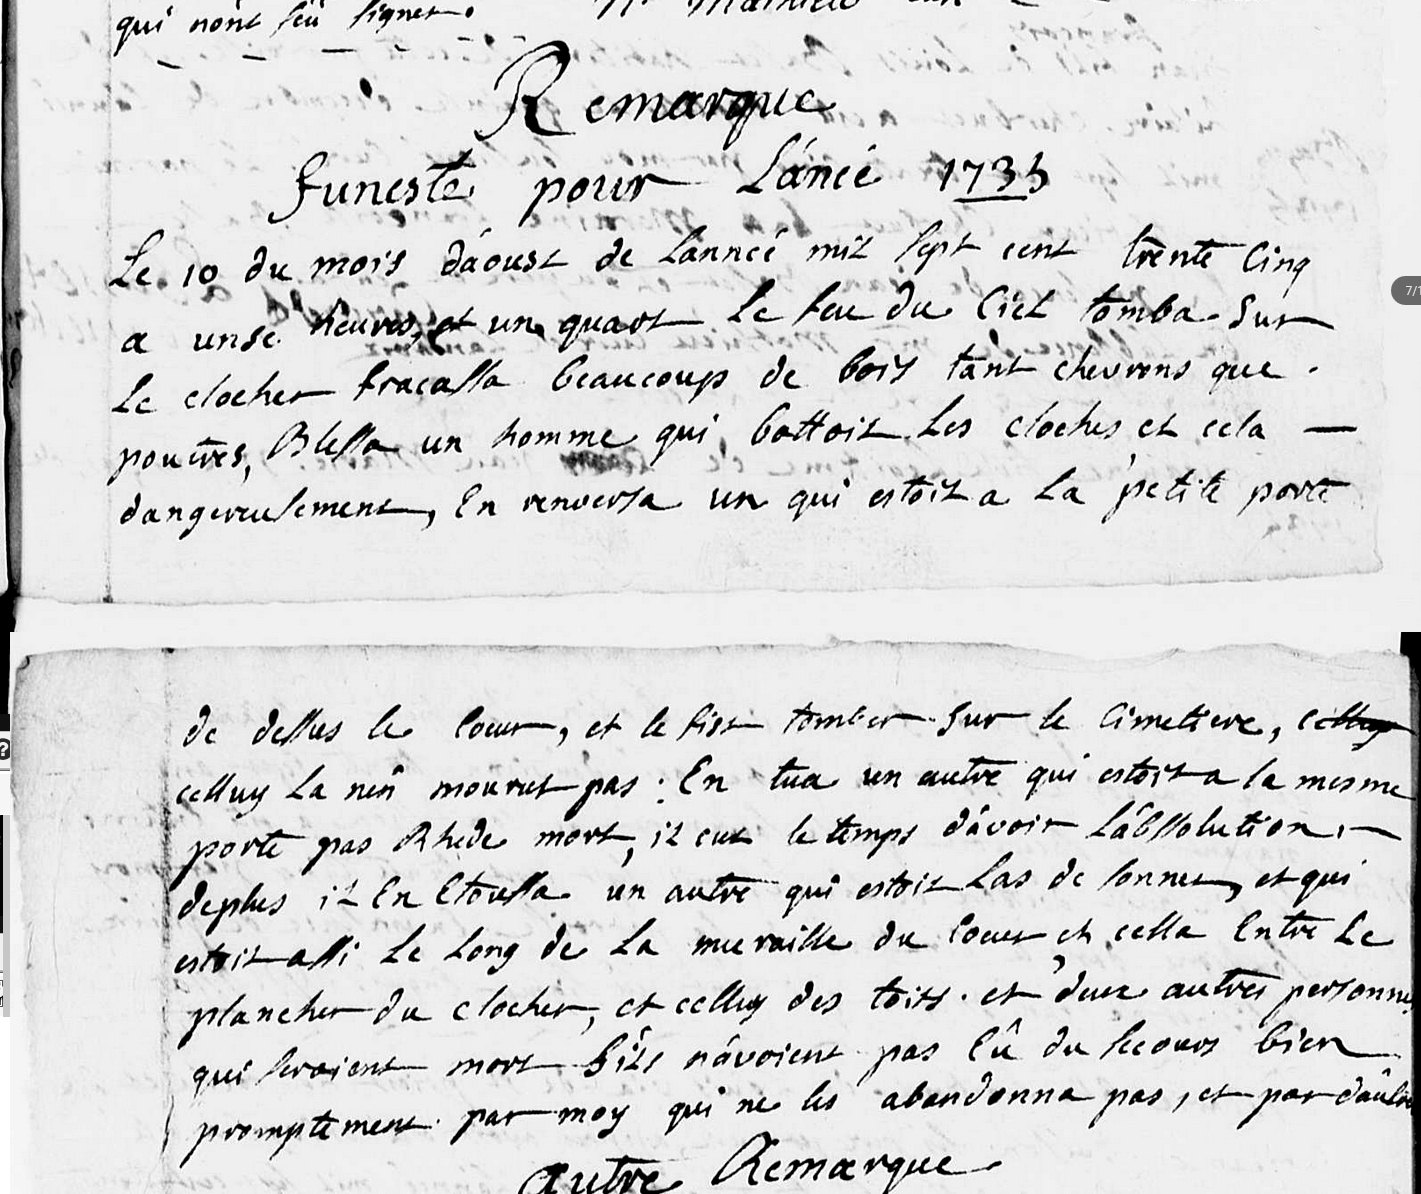 qui nont sçû signer.
Remarque
funeste pour L'anée 1735
Le 10 du mois d'aoust de Lanneé mil sept cent trente Cinq
a unse heures, et un quart Le feu du Ciel tomba Sur
Le clocher fracassa beaucoup de bois tant chevrons que
poutres, Blessa un homme qui battoit Les cloches et cela
dangereusement, En renversa un qui estoit a La petite porte
de dessus le Coeur, et le fist tomber Sur le Cimetiere,
celluy La nen mourut pas : En tua un autre qui estoit a la mesme
porte pas Rhede mort, il eut le temps d'avoir L'abssolution,
deplus il En Etouffa un autre qui estoit Las de sonner, et qui
estoit assi Le Long de La mueraille du Coeur et cella Entre Le
plancher du clocher, et celluy des toits. et deux autres personnes
qui seroient mort S'ils n'avoient pas Eû du secours bien
promptement par moy qui ne les abandonna pas, et par d'autres
Autre Remarque